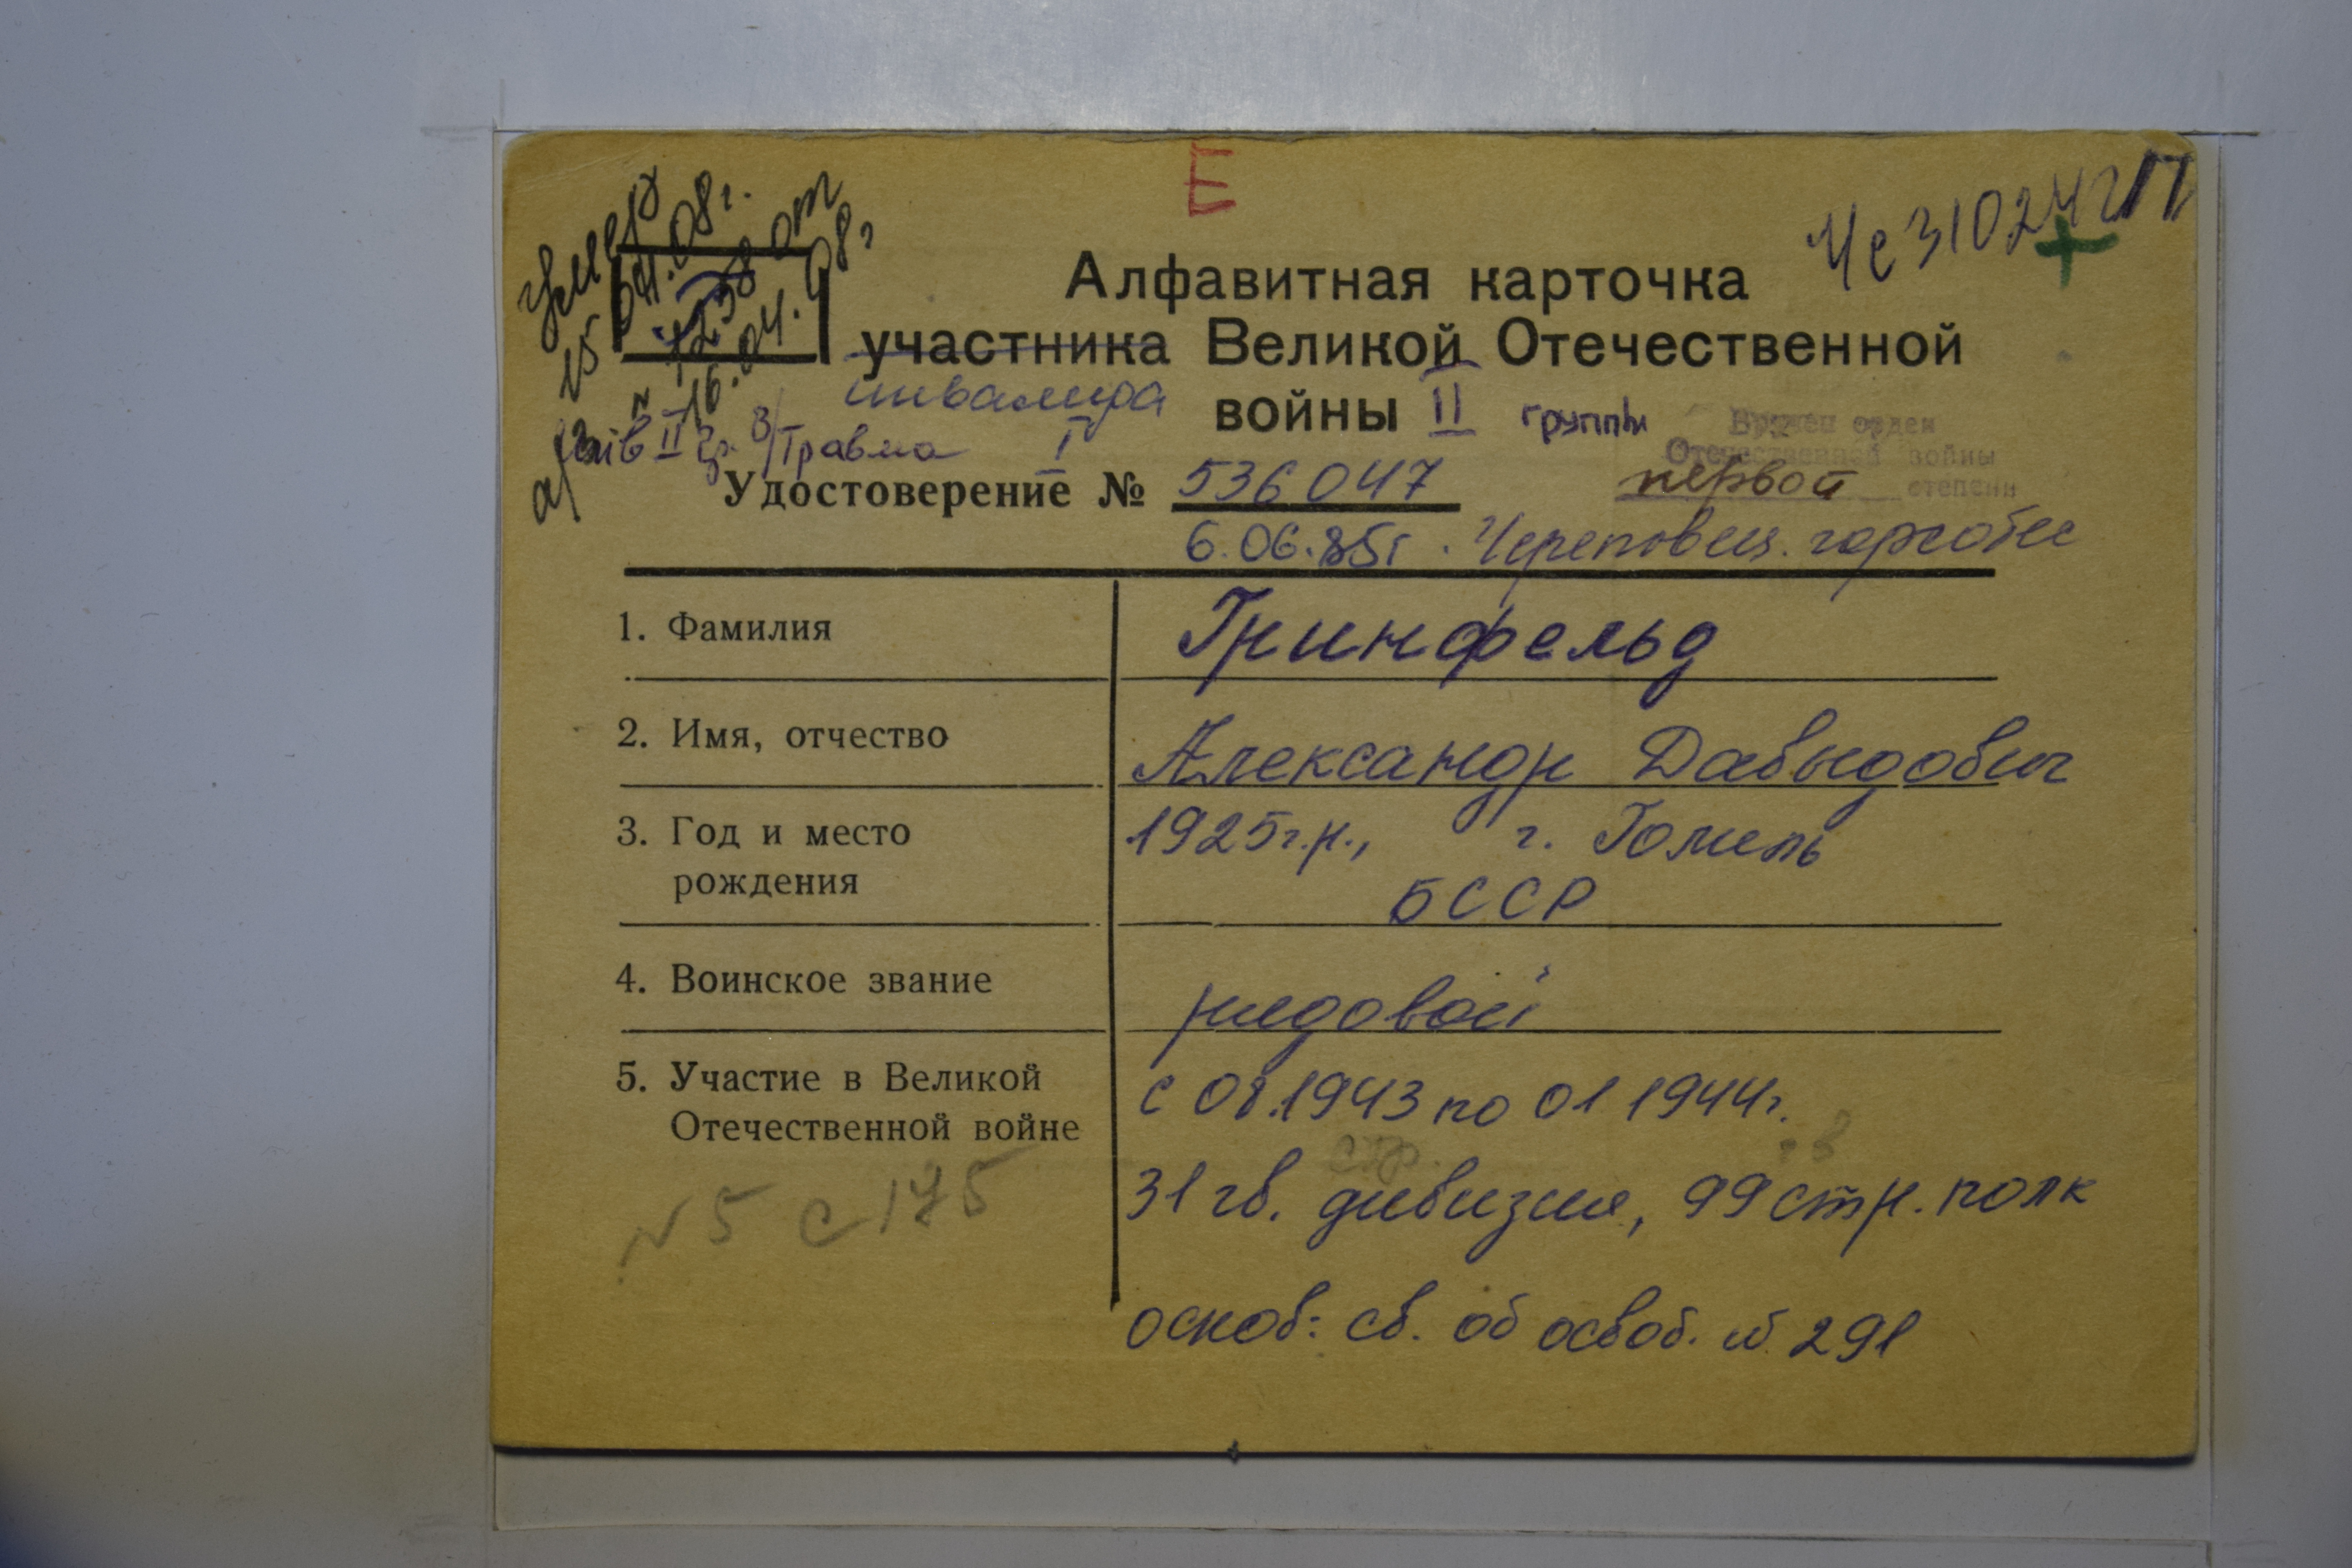 Е
умер
15.04.08г.
1258 от
16.04.08г
Че310242
Алфавитная карточка
участника Великой Отечественной
инвалида войны II группы
инв II гр. з/травма I
Вручен орден
Отечественной войны
первой степени
Удостоверение № 536047
6.06.85г. Череповец. горсобес
1. Фамилия Гринфельд
2. Имя, отчество Александр Давыдович
3. Год и место 1925г.р., г. Гомель
рождения БССР
4. Воинское звание рядовой
5. Участие в Великой с 08.1943 по 01 1944г.
Отечественной войне
стр.
31 гв. дивизия, 99 стр. полк
N 5 с 175
основ: св. об освоб. № 291